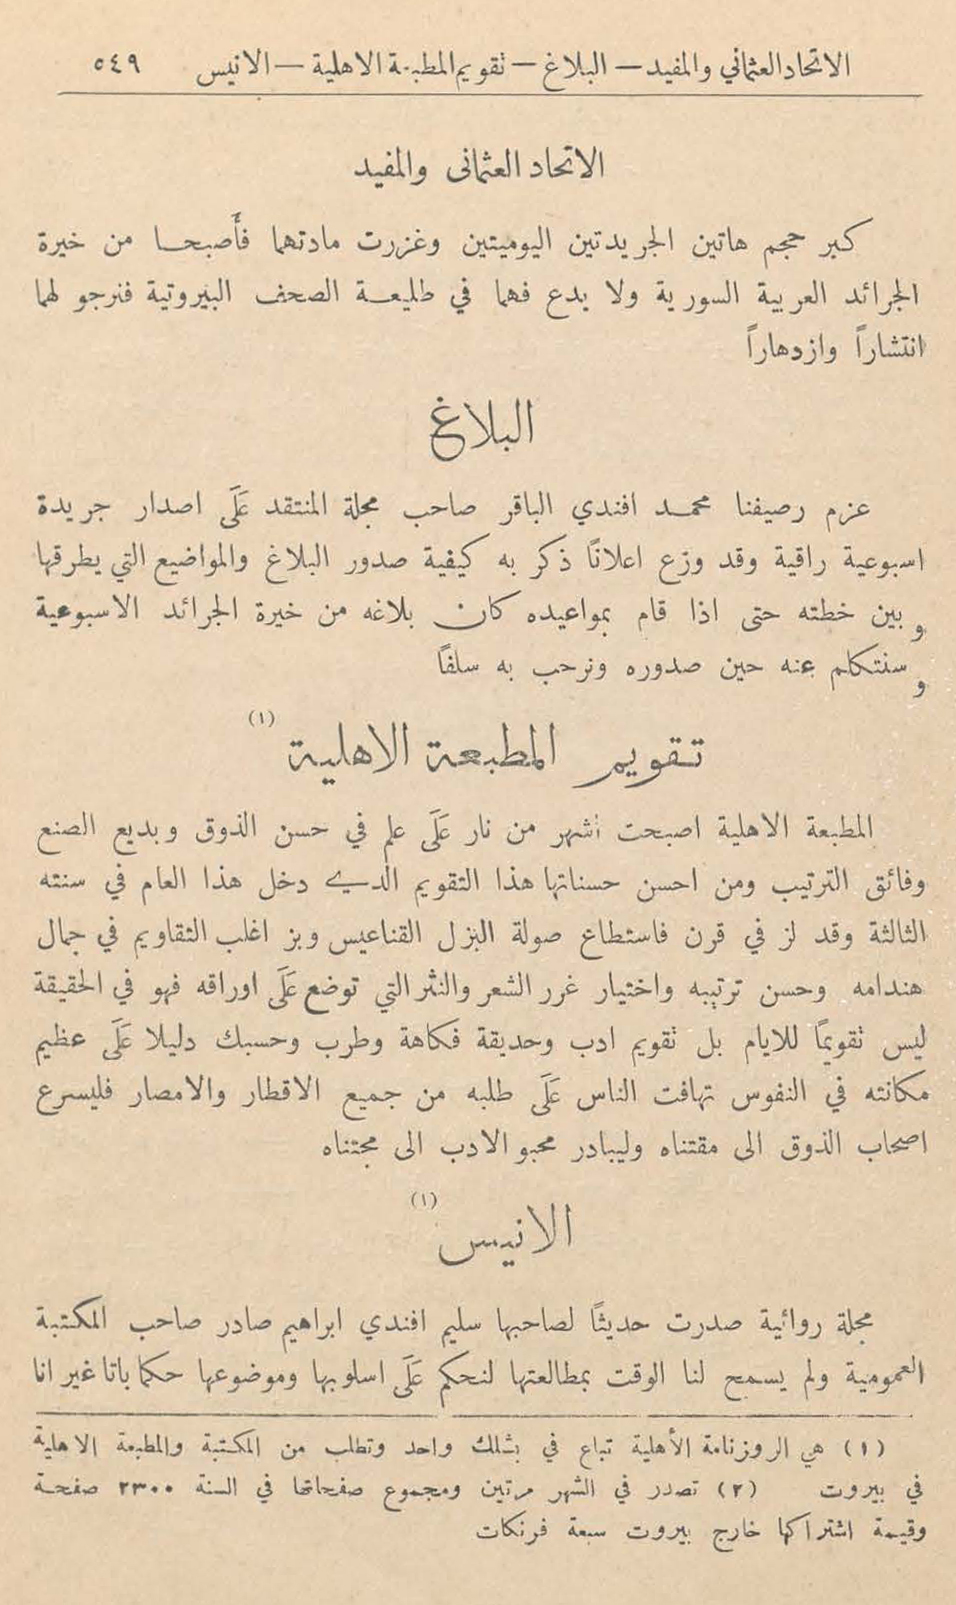 الاتحاد العثماني والمفيد — البلاغ — تقويم المطبعة الاهلية — الانيس ٥٤٩
الاتحاد العثماني والمفيد
كبر حجم هاتين الجريدتين اليوميتين وغزرت مادتهما فأصبحا من خيرة
الجرائد العربية السورية ولا بدع فهما في طليعة الصحف البيروتية فنرجو لهما
انتشاراً وازدهاراً
البلاغ
عزم رصيفنا محمد افندي الباقر صاحب مجلة المنتقد عَلَى اصدار جريدة
اسبوعية راقية وقد وزع اعلانًا ذكر به كيفية صدور البلاغ والمواضيع التي يطرقها
وبين خطته حتى اذا قام بمواعيده كان بلاغه من خيرة الجرائد الاسبوعية
وسنتكلم عنه حين صدوره ونرحب به سلفًا
تقويم المطبعة الاهلية (١)
المطبعة الاهلية اصبحت أشهر من نار عَلَى علم في حسن الذوق وبديع الصنع
وفائق الترتيب ومن احسن حسناتها هذا التقويم الدي دخل هذا العام في سنته
الثالثة وقد لز في قرن فاستطاع صولة البزل القناعيس وبز اغلب التقاويم في جمال
هندامه وحسن ترتيبه واختيار غرر الشعر والنثر التي توضع عَلَى اوراقه فهو في الحقيقة
ليس تقويمًا للايام بل تقويم ادب وحديقة فكاهة وطرب وحسبك دليلا عَلَى عظيم
مكانته في النفوس تهافت الناس عَلَى طلبه من جميع الاقطار والامصار فليسرع
اصحاب الذوق الى مقتناه وليبادر محبو الادب الى مجتناه
الانيس (١)
مجلة روائية صدرت حديثًا لصاحبها سليم افندي ابراهيم صادر صاحب المكتبة
العمومية ولم يسمح لنا الوقت بمطالعتها لنحكم عَلَى اسلوبها وموضوعها حكما باتا غير انا
(١) هي الروزنامة الأهلية تباع في بشلك واحد وتطلب من المكتبة والمطبعة الاهلية
في بيروت (٢) تصدر في الشهر مرتين ومجموع صفحاتها في السنة ٢٣٠٠ صفحة
وقيمة اشتراكها خارج بيروت سبعة فرنكات